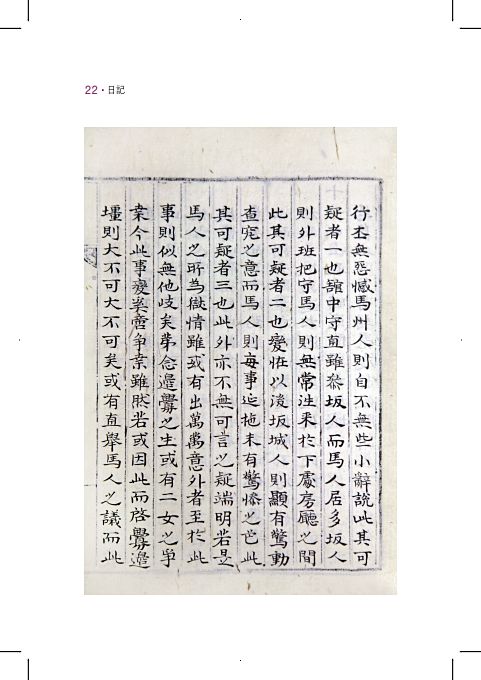 22・日記
行丕無惡憾馬州人則自不無些小辭說此其可
疑者一也館中守直雖發坂人而馬人居多坂人
則外班把守馬人則無常往來於下處房廳之間
此其可疑者二也變恠以後坂城人則顯有驚動
查究之意而馬人則每事延拖未有驚慘之色此
其可疑者三也此外亦不無可言之疑端明若是
馬人之所為獄情雖或有出萬萬意外者至於此
事則似無他歧矣第念邊釁之生或有二女之爭
桑今此事變奚啻爭桑雖然若或因此而啓釁邊
壃則大不可大不可矣或有直舉馬人之議而此